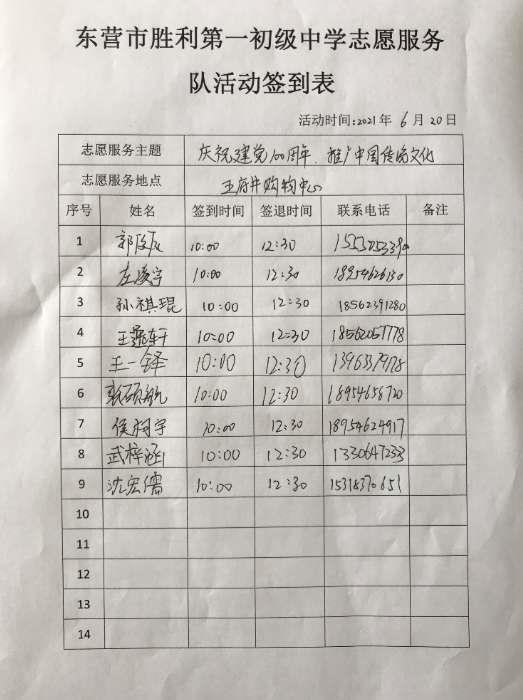 东营市胜利第一初级中学志愿服务
队活动签到表
活动时间:2021年 6月20日
志愿服务主题 庆祝建党100周年、推广中国传统文化
志愿服务地点 王府井购物中心
序号 姓名 签到时间 签退时间 联系电话 备注
1 10:00 12:30
2 左浚宇 10:00 12:30 18954626130
3 孙祺琨 10:00 12:30 18562391280
4 10:00 12:30 18562057778
5 王一铎 10:00 12:30
6 10:00 12:30 18954656720
7 10:00 12:30 18954624917
8 武梓涵 10:00 12:30 1330647233
9 沈宏儒 10:00 12:30
10
11
12
13
14